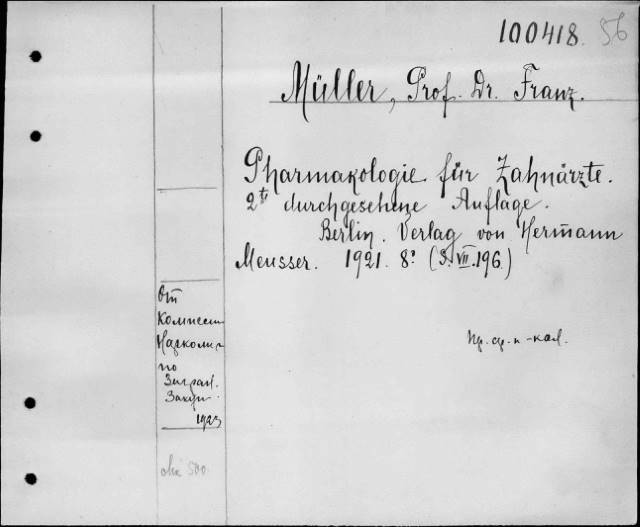 100418. 56
Müller, Prof. Dr. Franz.
Pharmakologie für Zahnärzte.
2te durchgesehene Auflage.
Berlin. Verlag von Hermann
Meusser. 1921. 8° (3. VII. 196.)
От
Комиссии
Наркома
по
Заграл.
Закуп.
1923
500